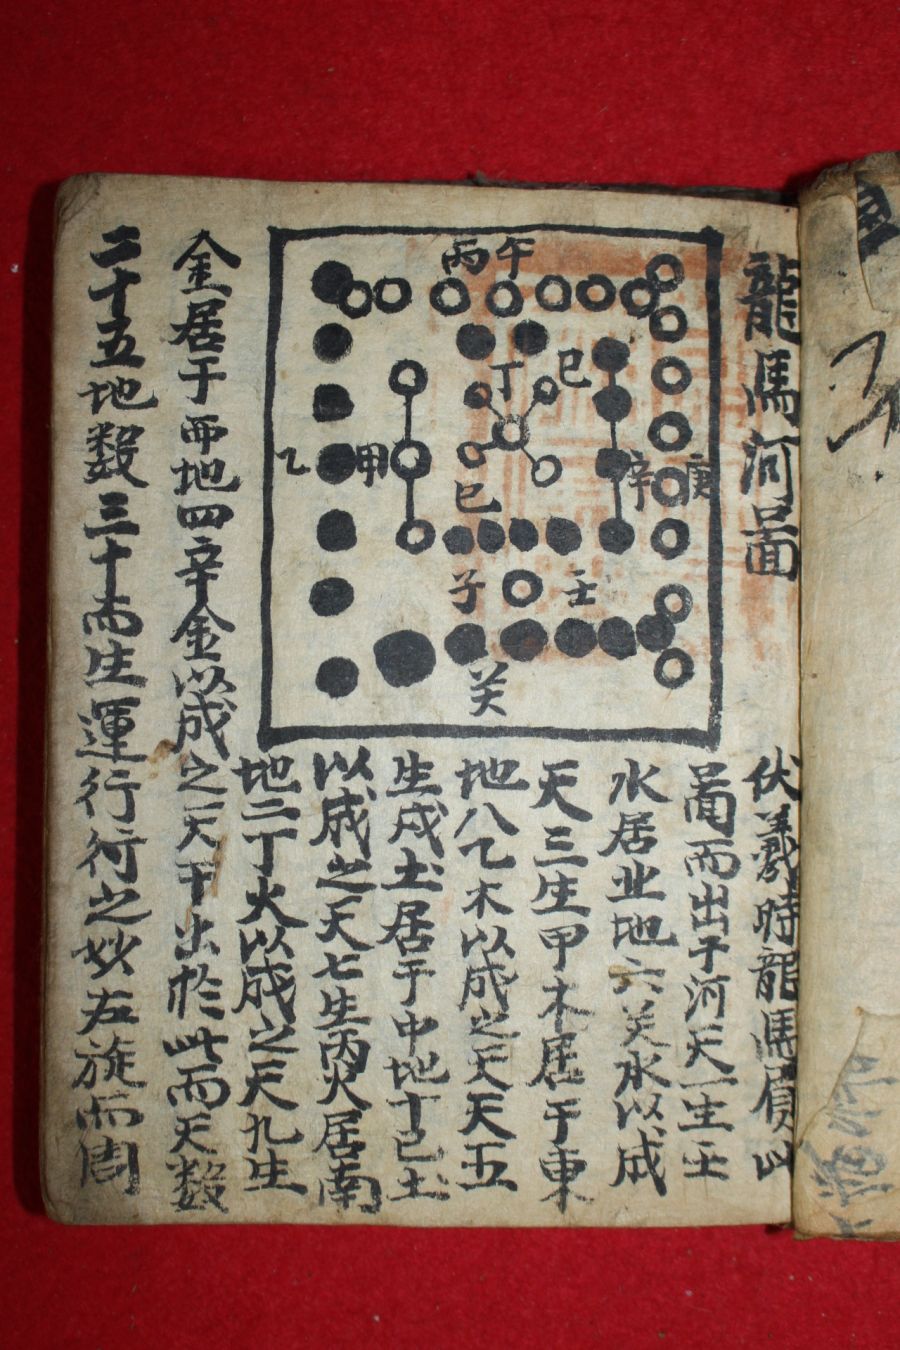 龍馬河圖
伏羲時龍馬負此
圖而出于河天一生壬
水居北地六癸水以成
天三生甲木居于東
地八乙木以成之天天五
生戊土居于中地十己土
以成之天七生丙火居南
地二丁火以成之天九生
金居于西地四辛金以成之天干出於此而天数
二十五地数三十而生運行衍之妙左旋而周
丙午
丁
巳
乙
甲
巳
辛
庚
子
壬
癸